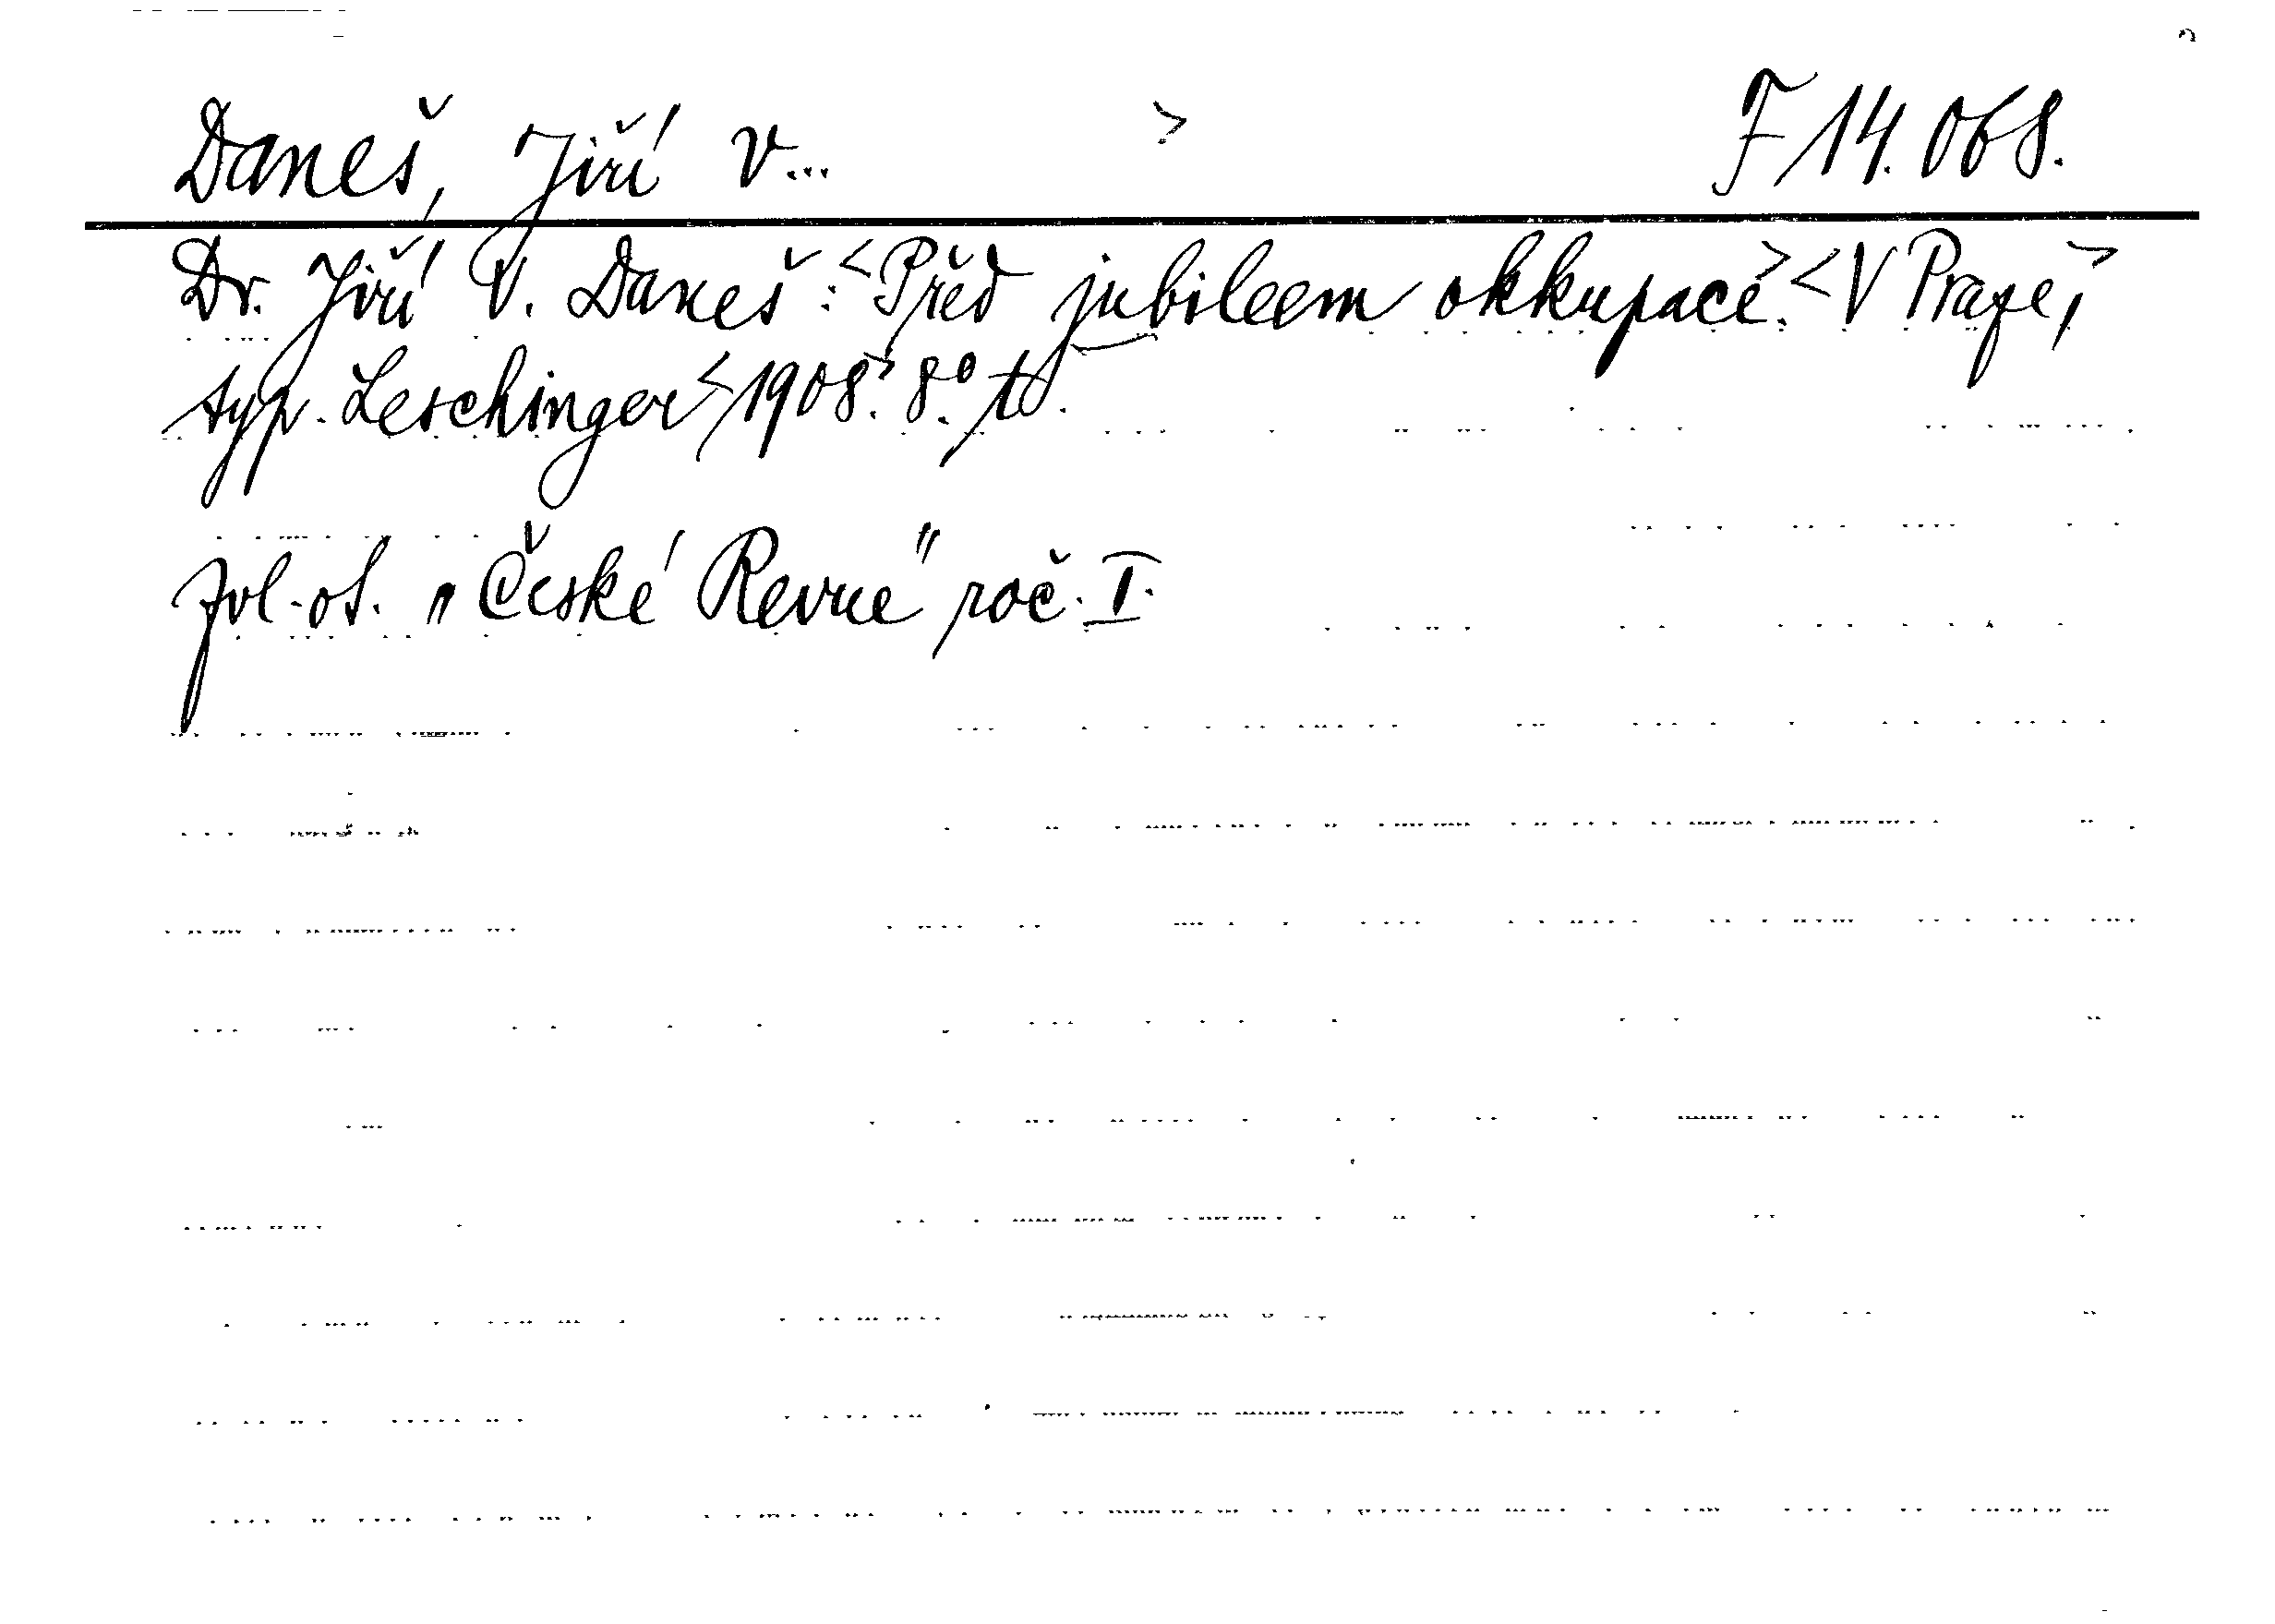 Daneš, Jiří V... > F 14.068.
Dr. Jiří V. Daneš: <Před jubileem okkupace.> <V Praze,>
typ. Leschinger <1908.> 8°.
Zvl. ot. „České Revue" roč. I.